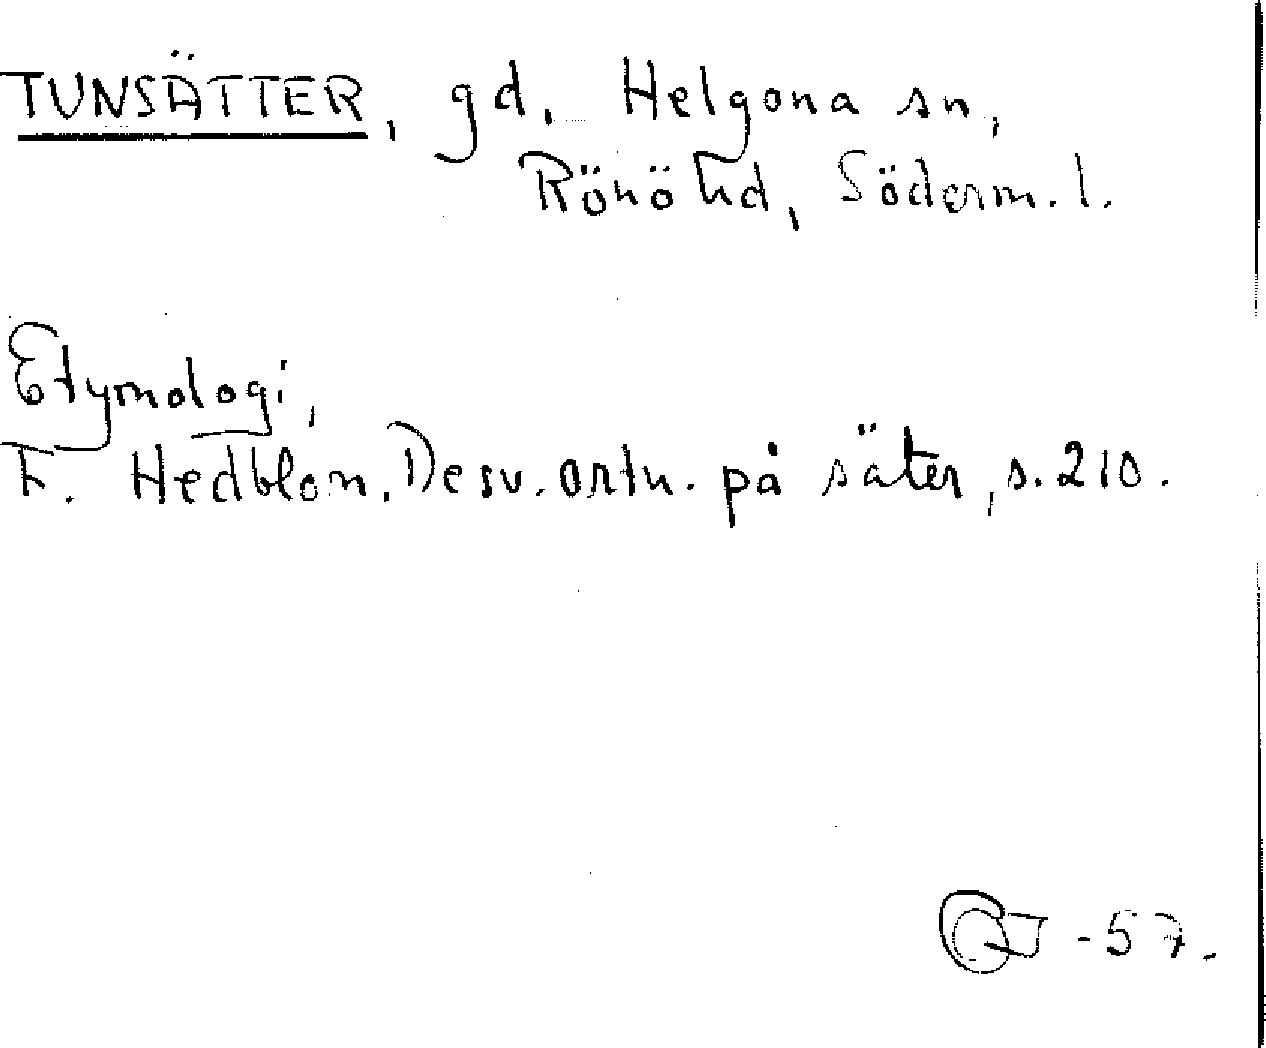 TUNSÄTTER, gd, Helgona sn,
Rönö hd, Söderm. l.
Etymologi,
F. Hedblom. De sv. ortn. på säter, s. 210.
-57.